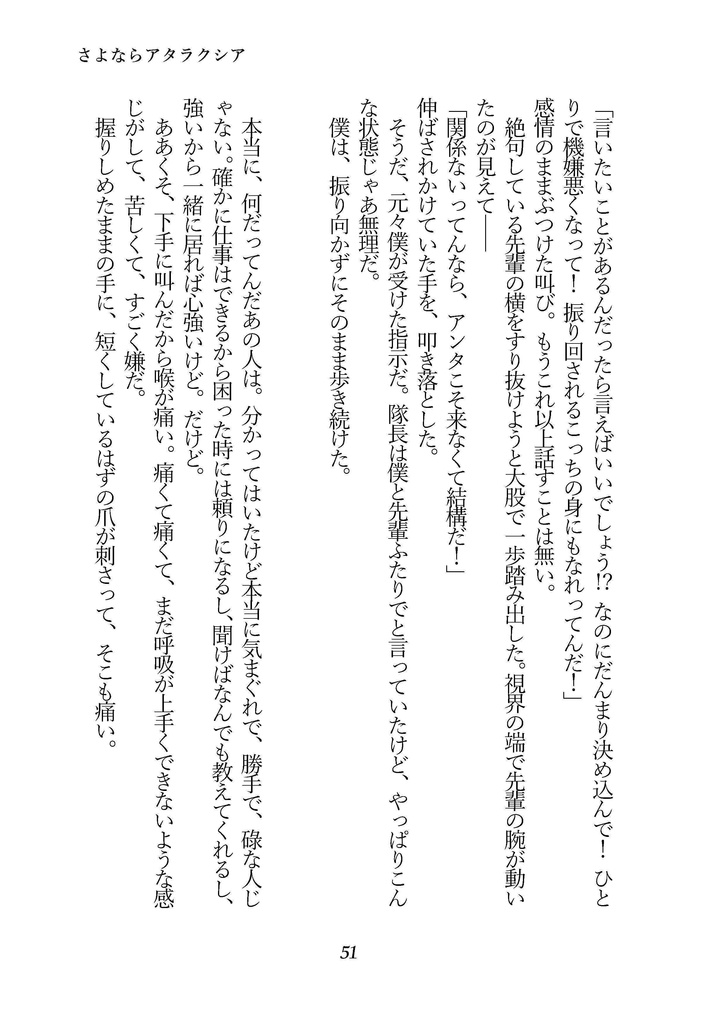 さよならアタラクシア
「言いたいことがあるんだったら言えばいいでしょう!? なのにだんまり決め込んで！ ひと
りで機嫌悪くなって！ 振り回されるこっちの身にもなれってんだ！」
感情のままぶつけた叫び。もうこれ以上話すことは無い。
絶句している先輩の横をすり抜けようと大股で一歩踏み出した。視界の端で先輩の腕が動い
たのが見えて――
「関係ないってんなら、アンタこそ来なくて結構だ！」
伸ばされかけていた手を、叩き落とした。
そうだ、元々僕が受けた指示だ。隊長は僕と先輩ふたりでと言っていたけど、やっぱりこん
な状態じゃあ無理だ。
僕は、振り向かずにそのまま歩き続けた。
本当に、何だってんだあの人は。分かってはいたけど本当に気まぐれで、勝手で、碌な人じ
ゃない。確かに仕事はできるから困った時には頼りになるし、聞けばなんでも教えてくれるし、
強いから一緒に居れば心強いけど。だけど。
ああくそ、下手に叫んだから喉が痛い。痛くて痛くて、まだ呼吸が上手くできないような感
じがして、苦しくて、すごく嫌だ。
握りしめたままの手に、短くしているはずの爪が刺さって、そこも痛い。
51